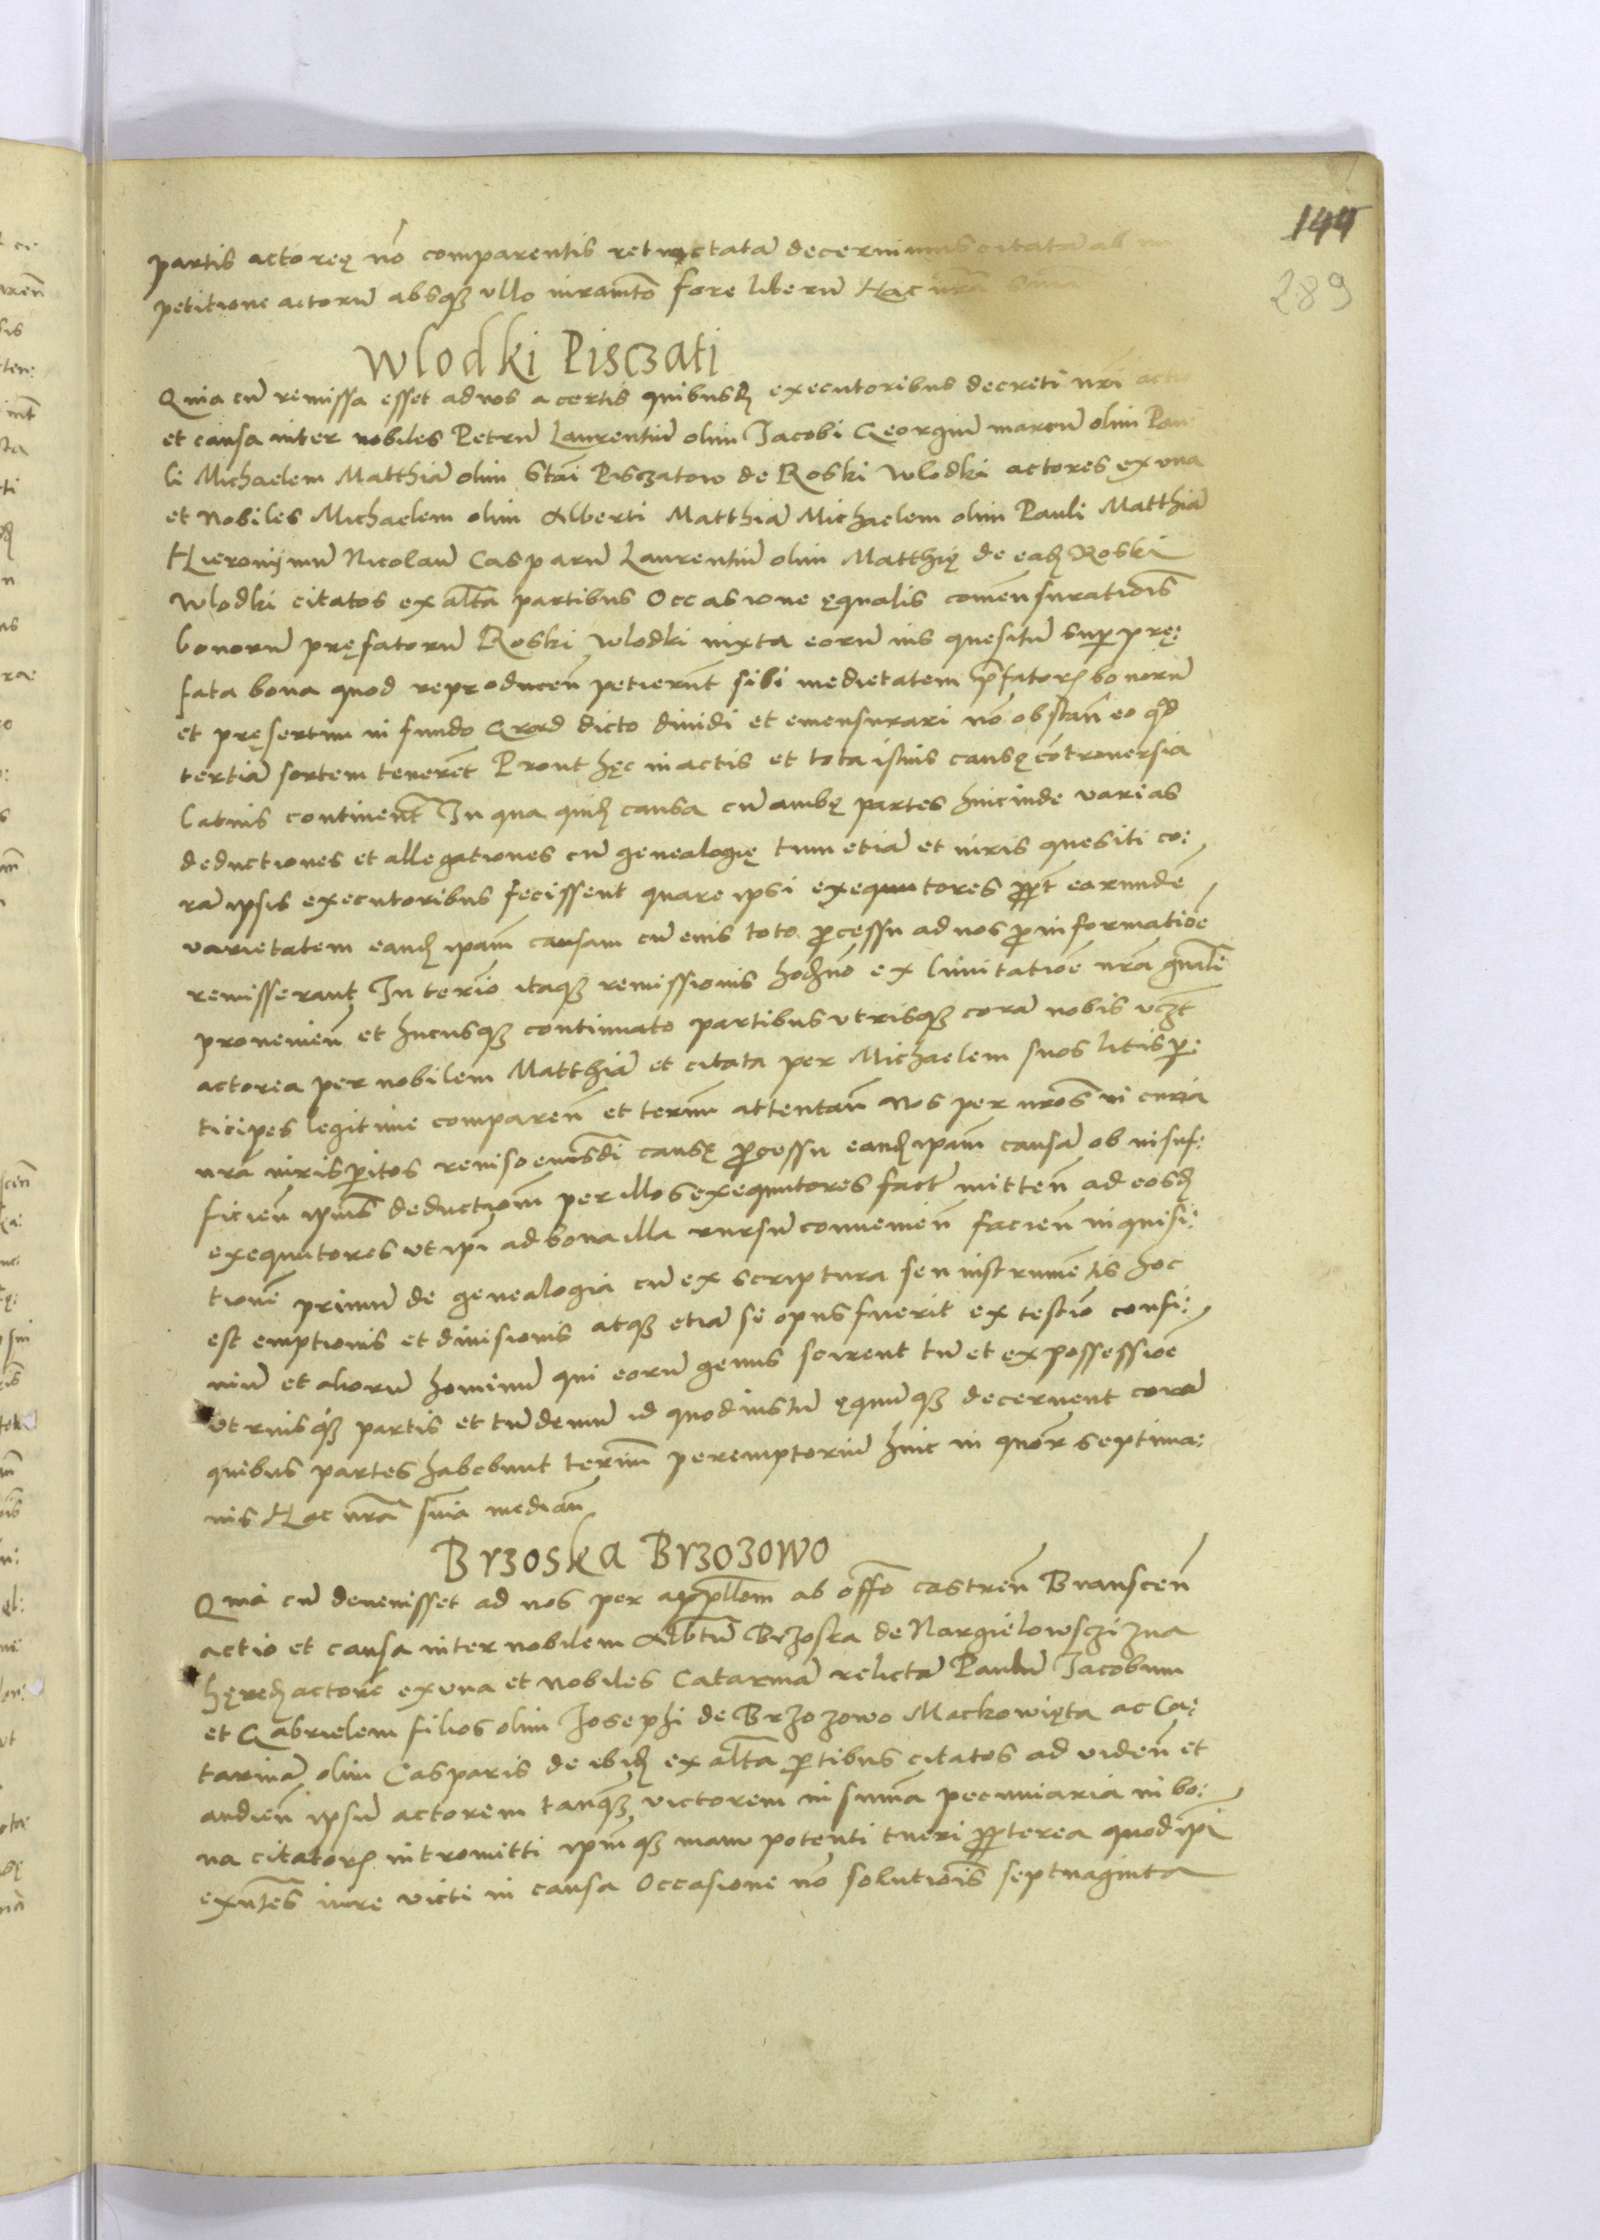 144
289
partis actoreę nō comparentis retractatā decernimus citatā ab
petitione actorū absqꝫ ullo iuramto fore liberū Hac nrā
Wlodki Pisczati
Quia cū remissa esset ad nos a certis quibusd executoribus decreti nri actio
et causa inter nobiles Petrū Laurentiū olim Jacobi Georgiū marcū olim Pau
li Michaelem Matthiā olim Stai Pisczatow de Roski Wlodki actores ex una
et Nobiles Michaelem olim Alberti Matthiā Michaelem olim Pauli Matthiā
Hieronijmū Nicolaū Casparū Laurentiū olim Matthię de ead Roski
Wlodki citatos ex altā partibus Occasione ęqualis comēnsurationis
bonorū pręfatorū Roski Wlodki iuxta eorū ius quesitū sup prę:
fata bona quod reproducen petierūt sibi medietatem pfator bonorū
et pręsertim in fundo Grod dicto diuidi et emensurari nō obstan eo qd
tertiā sortem tenerēt Prout hęc in actis et tota istius causę cōtrouersia
latius continent In qua quid causa cū ambę partes hincinde varias
deductiones et allegationes cū genealogię tum etiā et iuris quesiti co:
rā ipsis executoribus fecissent quare ipsi exequutores ppt earundē
varietatem eand ipam causam cū eius toto pcessu ad nos p informatiōe
remisserant In termo itaqꝫ remissionis hodno ex limitatiōe nrā gnali
prouenien et hucusqꝫ continuato partibus utrisqꝫ corā nobis uczt
actorea per nobilem Matthiā et citata per Michaelem suos litis p:
ticipes legitime comparen et termi attentan Nos per nros in curia
nrā iuris pitos reuiso eiusdi causę pcessu eand ipam causā ob insuf:
ficien ipius deductionem per illos exequutores fact mitten ad eosd
exequutores ut ipi ad bona illa rursū conuenien facien inquisi:
tionē primū de genealogia cū ex scriptura seu instrumētis hoc
est emptionis et diuisionis atqꝫ etiā si opus fuerit ex testio confi:
niū et aliorū hominū qui eorū genus scirent tū et ex possessioē
utriusqꝫ partis et tū demū id quod iustū ęquūqꝫ decernent corā
quibus partes habebunt termi peremptoriū hinc in quor septima:
nis Hac nrā snia median
Brzoska Brzozowo
Quia cū deuenisset ad nos per appllem ab offo castren Branscen
actio et causa inter nobilem Albtū Brzoska de Nargielowsczizna
hęred actorē ex una et Nobiles Catarinā relictā Paulū Jacobum
et Gabrielem filios olim Josephi de Brzozowo Mackowięta ac Ca:
tarinā olim Casparis de ibid ex altā ptibus citatos ad viden et
audien ipsū actorem tanqꝫ victorem in sumā pecuniaria in bo:
na citator intromitti ipmqꝫ manu potenti tueri ppterea quod ipi
exntes iure victi in causa Occasione nō solutionis septuaginta